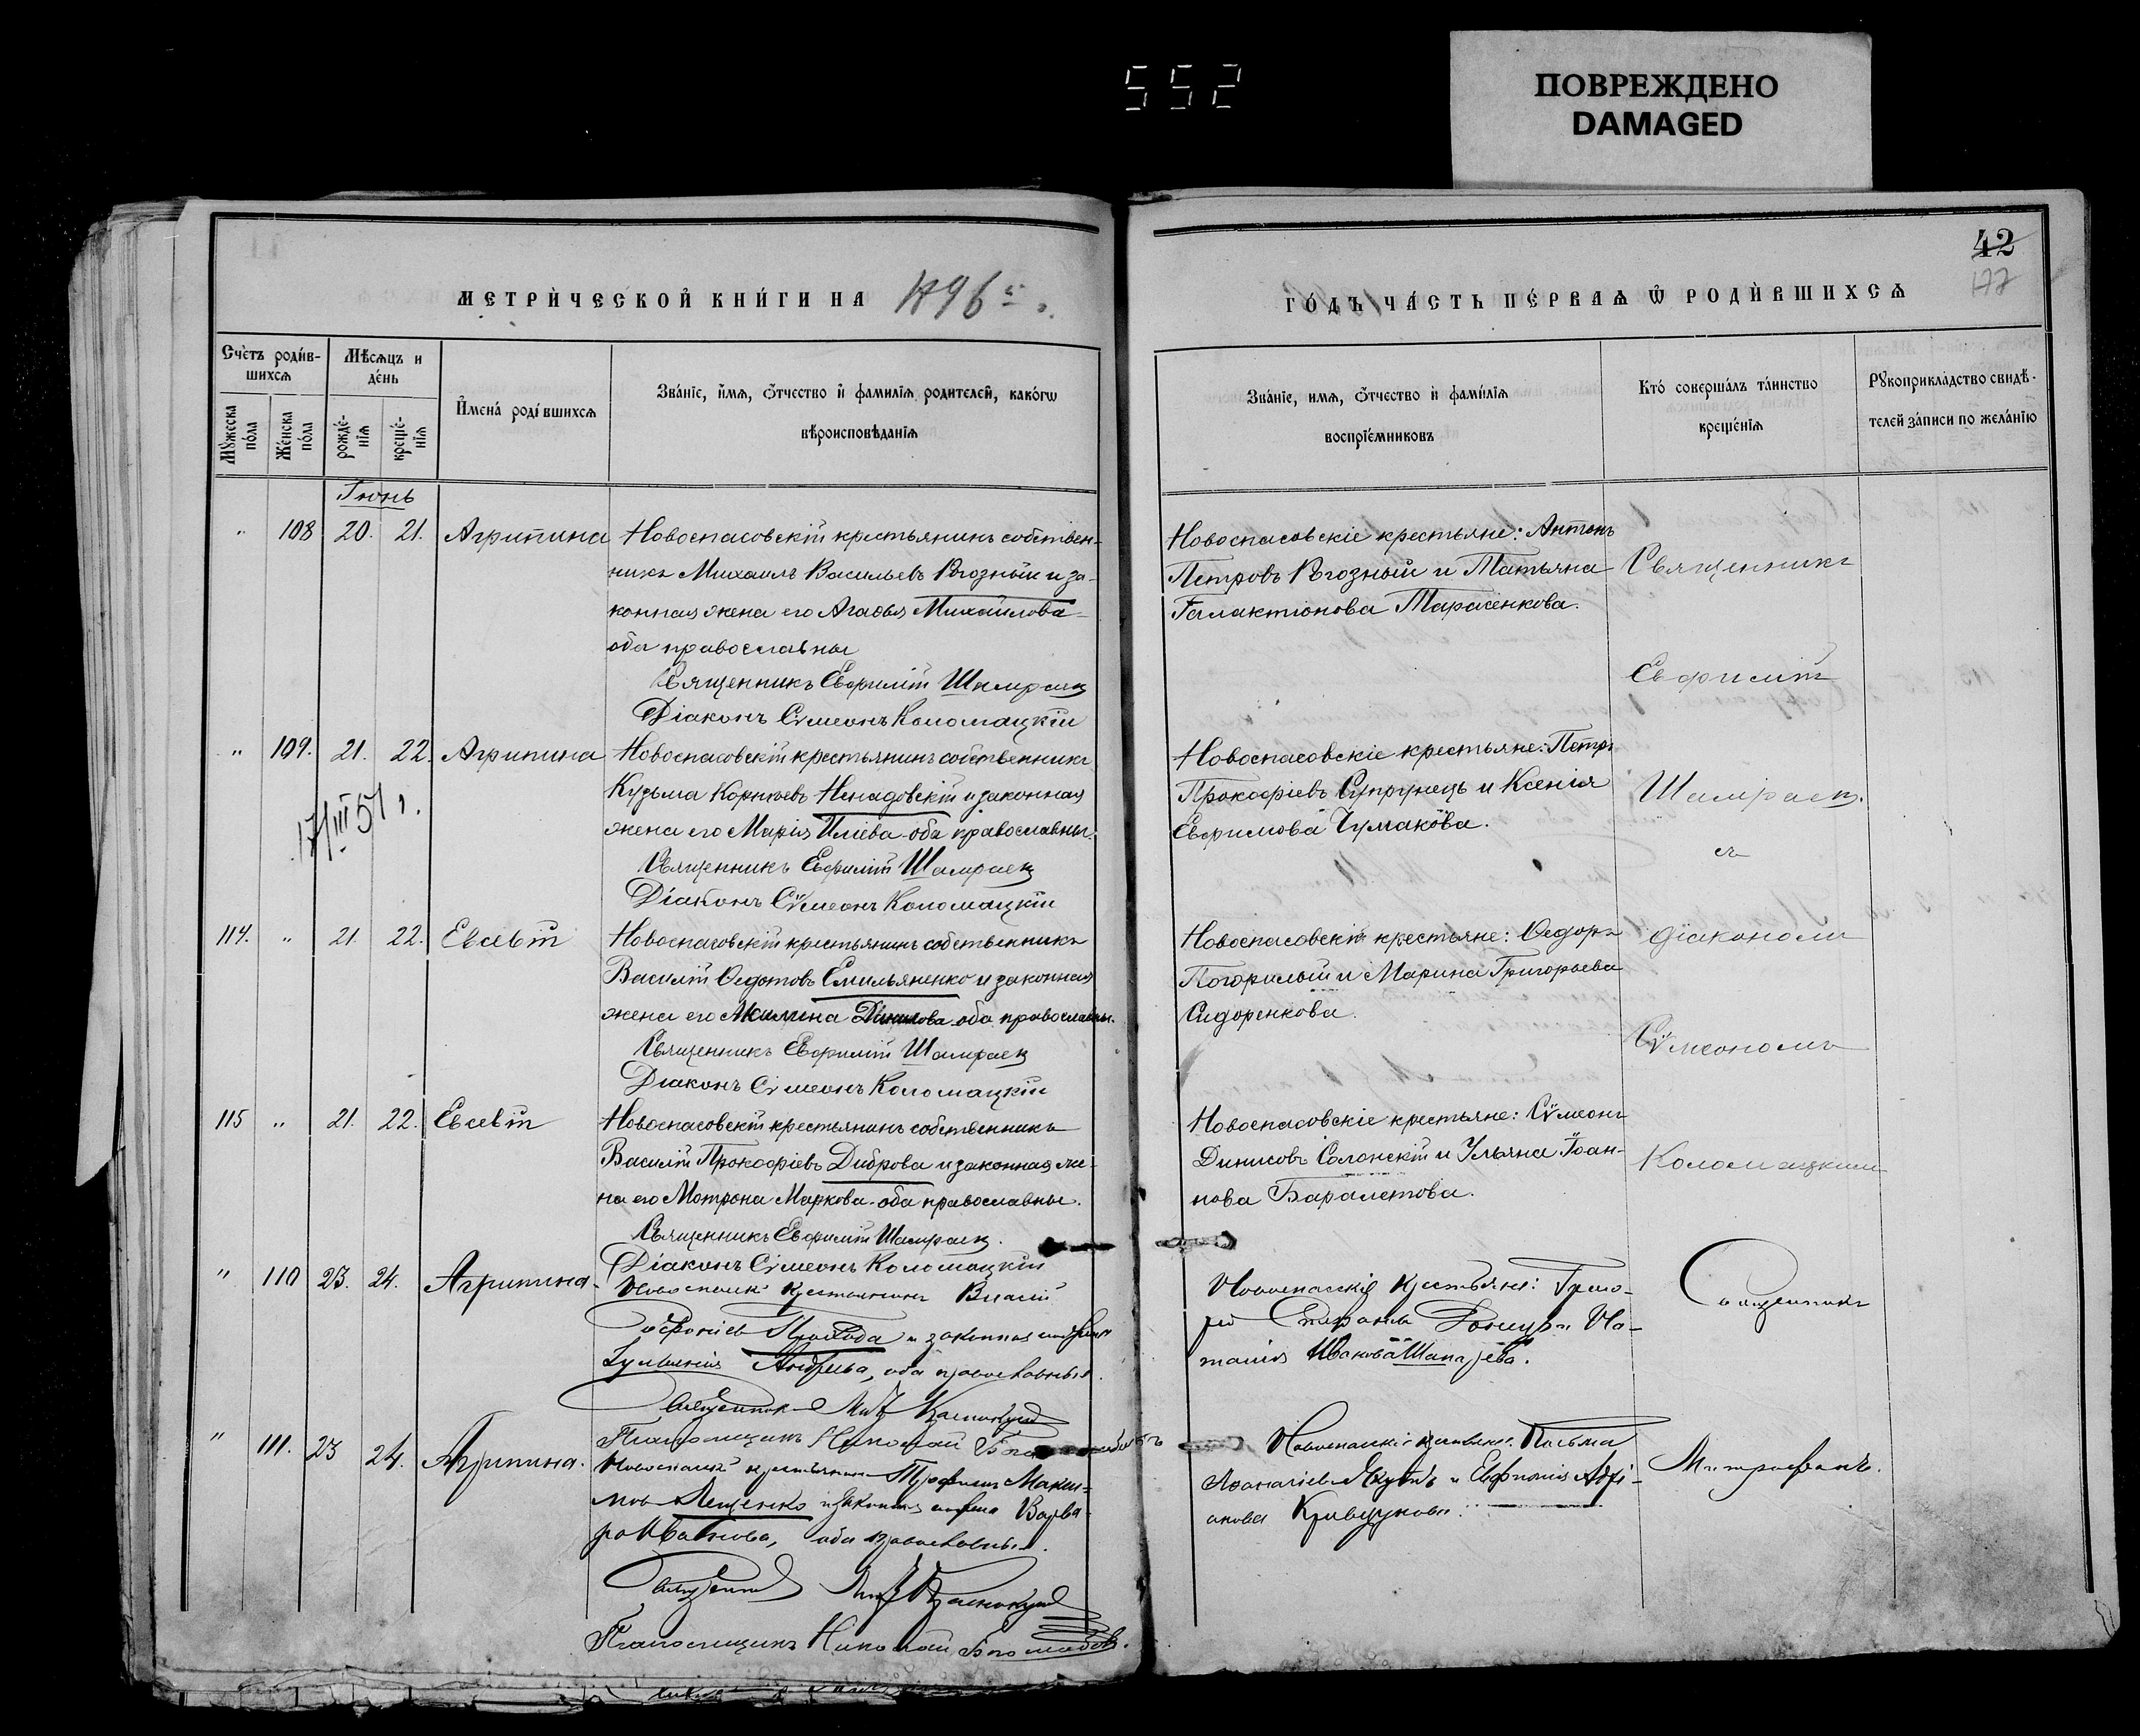 552
ПОВРЕЖДЕНО
DAMAGED
42
177
МЕТРИ́ЧЕСКОЙ КНИ́ГИ НА 1896 г.
ГО́ДЪ ЧА́СТЬ ПЕ́РВАѦ Ѡ҆ РОДИ́ВШИХСѦ
Сче́тъ роди́в-
шихсѧ
Мѣ́сѧцъ и
де́нь
Мꙋ́жеска
по́ла
Же́нска
по́ла
рожде́-
нїѧ
креще́-
нїѧ
И҆мена́ роди́вшихсѧ
Зва́нїе, и҆́мѧ, ѻ҆́тчество и҆ фамилїѧ родителей, како́гѡ
вѣроисповѣ́данїѧ
Зва́нїе, имѧ, ѻ҆́тчество и҆ фами́лїѧ
воспрїе́мниковъ
Кто́ соверша́лъ та́инство
креще́нїѧ
Рꙋкоприкла́дство свидѣ́-
телей за́писи по жела́нїю
Іюнь
" 108 20. 21. Агрипина
Новоспасовскій крестьянинъ собствен-
никъ Михаилъ Васильевъ Рогозный и за-
конная жена его Агафья Михайлова
оба православны
Священникъ Евфимій Шамраец
Діаконъ Сѵмеонъ Коломацкій
Новоспасовскіе крестьяне: Антонъ
Петровъ Рогозный и Татьяна
Галактіонова Тарасенкова.
Священникъ
Евфимій
" 109. 21. 22. Агрипина
17/III 51 г.
Новоспасовскій крестьянинъ собственникъ
Кузьма Корнѣевъ Ненадовскій и законная
жена его Марія Иліева оба православны.
Священникъ Евфимій Шамраец
Діаконъ Сѵмеонъ Коломацкій
Новоспасовскіе крестьяне: Петръ
Прокофіевъ Супрунецъ и Ксенія
Евфимова Чумакова.
Шамраец.
съ
114. " 21. 22. Евсевій
Новоспасовскій крестьянинъ собственникъ
Василій Ѳедотовъ Емильяненко и законная
жена его Акилина Данилова оба православны.
Священникъ Евфимій Шамраец
Діаконъ Сѵмеонъ Коломацкій
Новоспасовскіе крестьяне: Ѳедоръ
Погорилый и Марина Григорьева
Сидоренкова.
діакономъ
Сѵмеономъ
115 " 21. 22. Евсевій
Новоспасовскій крестьянинъ собственникъ
Василій Прокофіевъ Диброва и законная же-
на его Мотрона Маркова оба православны.
Священникъ Евфимій Шамраец.
Діаконъ Сѵмеонъ Коломацкій
Новоспасовскіе крестьяне: Сѵмеонъ
Динисовъ Солонскій и Ульяна Іоан-
нова Баралетова.
Коломацкимъ
" 110 23. 24. Агрипина.
крестьянинъ Власій
и законная
Андреева, оба православные.
Священник Мит
Псаломщикъ Николай
Новоспасскіе крестьяне: Григо-
рій и На-
талія Иванова
Священникъ
" 111. 23 24. Агрипина.
крестьянин Трофимъ Макси-
мов Лещенко и законная Варва-
ра Иванова, оба православные.
Священник Мит
Псаломщикъ Николай
Новоспасскіе крестьяне: Козьма
Аѳанасіевъ и Евфимія
Митрофанъ.